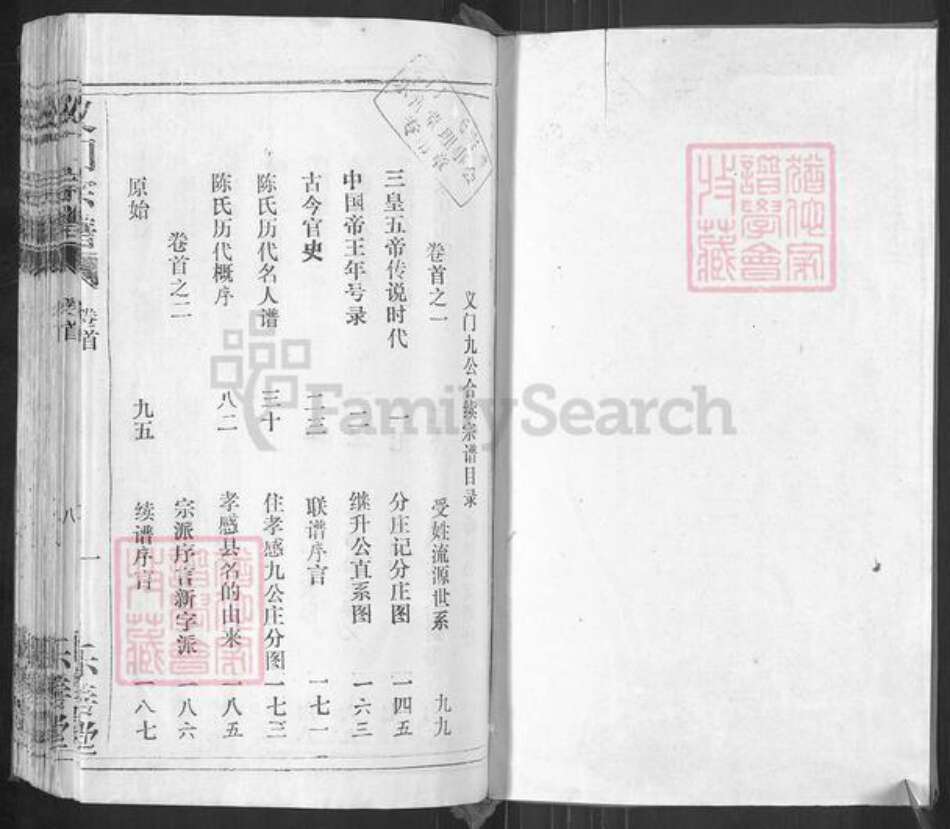 义门九公合续宗谱目录
卷首之一
三皇五帝传说时代 一
中国帝王年号录 二
古今官史 二三
陈氏历代名人谱 三十
陈氏历代概序 八二
卷首之二
原始 九五
受姓流源世系 九九
分庄记分庄图 一四五
继升公直系图 一六三
联谱序言 一七一
住孝感九公庄分图 一七三
孝感县名的由来 一八五
宗派序言新字派 一八六
续谱序言 一八七
卷首
一
乐善堂
卷首
八
FamilySearch
猶他家
譜學會
收藏
猶他家
譜學會
收藏